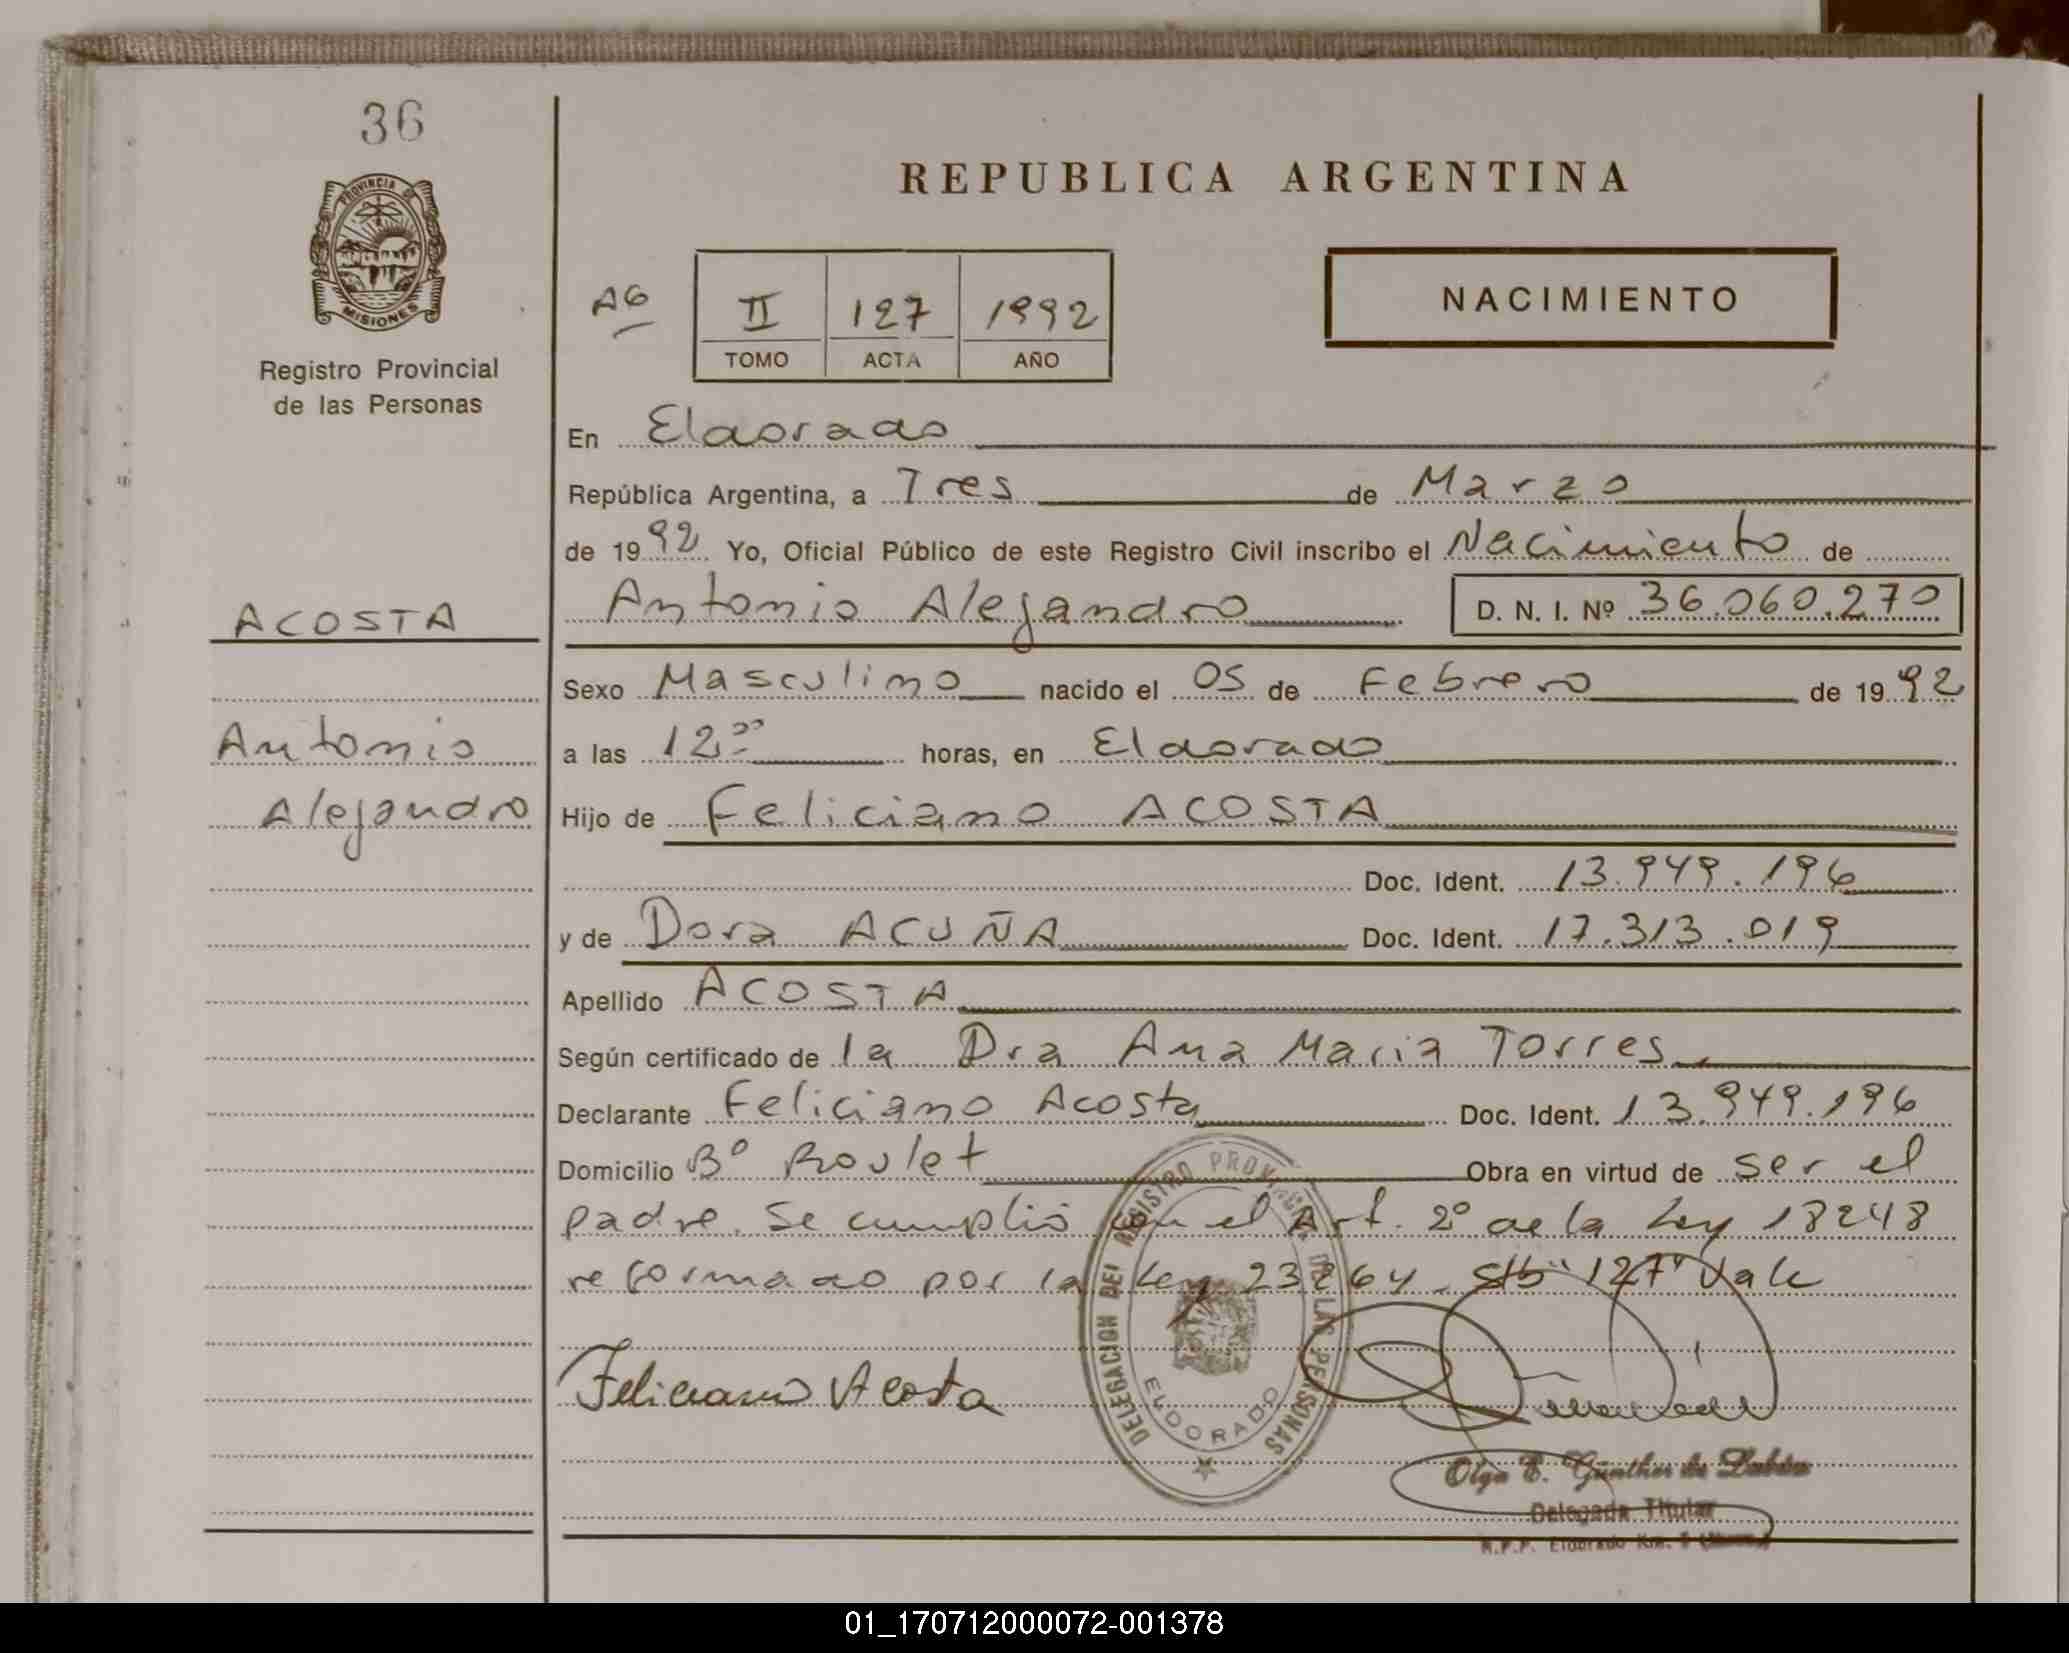 36
PROVINCIA DE
MISIONES
Registro Provincial
de las Personas
REPUBLICA ARGENTINA
AG
II 127 1992
TOMO ACTA AÑO
NACIMIENTO
En Eldorado
República Argentina, a Tres de Marzo
de 1992 Yo, Oficial Público de este Registro Civil inscribo el Nacimiento de
ACOSTA
Antonio Alejandro D. N. I. Nº 36.060.270
Sexo Masculino nacido el 05 de Febrero de 1992
Antonio
a las 12ºº horas, en Eldorado
Alejandro
Hijo de Feliciano ACOSTA
Doc. Ident. 13.949.196
y de Dora ACUÑA Doc. Ident. 17.313.019
Apellido ACOSTA
Según certificado de la Dra Ana Maria Torres
Declarante Feliciano Acosta Doc. Ident. 13.949.196
Domicilio Bº Roulet Obra en virtud de ser el
padre. Se cumplió con el Art. 2º de la Ley 18248
reformado por la Ley 23264. S/b "127" Vale
DELEGACION DEL REGISTRO PROVINCIAL DE LAS PERSONAS
ELDORADO
Feliciano Acosta
Olga E. Günther de
Delegada Titular
R.P.P. Eldorado Km.
01_170712000072-001378